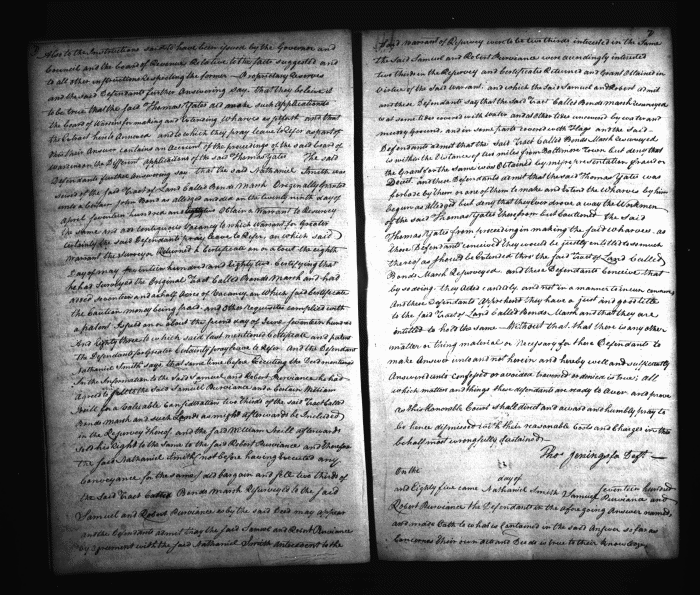 Also to the Instructions said to have been issued by the Governor and
Council and the board of Revenue Relative to the facts suggested and
to all other instructions respecting the former Proprietary Reserves
and the said Defendants further Answering say. that they believe it
to be true that the said Thomas Yates did make such Applications
the board of Wardens for making and Extending Wharves as
the Exhibit hereto Annexed and to which they pray leave to Refer as part of
their Answer contains an Account of the proceedings of the said board of
wardens on the Different applications of the said Thomas Yates The said
Defendants further Answering say. that the said Nathaniel Smith was
seized of the said Tract of Land Called Bonds Marsh Originally Granted
unto a certain John Bond as alleged and did on the twenty ninth day of
April seventeen hundred and Obtain a Warrant to Resurvey
the same and add contiguous Vacancy to which warrant for Greater
Certainty the said Defendants pray leave to Refer, on which said
Warrant the Surveyor Returned a Certificate on or about the eighth
Day of May seventeen hundred and Eighty two. Certifying that
he had Surveyed the Original Tract Called Bonds Marsh and had
added seventeen and a half Acres of Vacancy, on Which said Certificate
the Caution money being paid and Other requisites complied with
a patent Issued on or about the third day of June seventeen hundred
And eighty three to which said last mentioned Certificate and patent
The Defendants for Greater Certainty pray leave to Refer. And the Defendant
Nathaniel Smith says that sometime before Executing the Deed mentioned
In the Information to the said Samuel and Robert Purviance he had
agreed to sell to the said Samuel Purviance and a Certain William
Smith for a Valuable Consideration two thirds of the said Tract Called
Bonds Marsh and such Lands as might afterwards be Included
in the Resurvey thereof and the said William Smith afterwards
sold his Right to the Same to the said Robert Purviance and therefore
the said Nathaniel Smith (not before having executed any
conveyance for the same) did bargain and sell two thirds of
the said Tract Called Bonds Marsh Resurveyed to the said
Samuel and Robert Purviance as by the said Deed may appear
and the Defendants admit that the said Samuel and Robert Purviance
by agreement with the said Nathaniel Smith antecedent to the
said Warrant of Resurvey were to be two thirds interested in the Same
the said Samuel and Robert Purviance were accordingly interested
two thirds in the Resurvey and Certificate Returned and Grant Obtained in
Virtue of the said Warrant, and which the said Samuel and Robert admit
and these Defendants say that the said Tract Called Bonds Marsh resurveyed
is at some tides covered with water and at other tides uncovered by water and
mirery Ground, and in some parts covered with Flags and the said
Defendants admit that the said Tract Called Bonds Marsh Resurveyed
is within the Distance of two miles from Baltimore Town but deny that
the Grant for the same was Obtained by misrepresentation fraud or
Deceit. and these Defendants admit that the said Thomas Yates was
forbade by them or one of them to make and Extend the Wharves by him
begun as alleged but deny that they ever drove away the Workmen
of the said Thomas Yates therefrom but cautioned the said
Thomas Yates from proceeding in making the said wharves. as
these Defendants conceived they would be justly entitled to so much
thereof as should be Extended thro the said Tract of Land Called
Bonds Marsh Resurveyed. and these Defendants Conceive that
by so doing they acted candidly and not in a manner to incur censure
And these Defendants Apprehend they have a just and good title
to the said Tract of Land Called Bonds Marsh and that they are
entitled to hold the same Without that. that there is any other
matter or thing material or necessary for these Defendants to
make Answer unto and not herein and hereby well and sufficiently
Answered unto confessed or avoided traversed or denied is true; all
which matters and things these defendants are ready to aver and prove
as this Honorable Court shall direct and award and humbly pray to
be hence dismissed with their reasonable Costs and Charges in this
behalf most wrongfully sustained
Thos Jenings for Defts.
On the day of seventeen hundred
and Eighty five came Nathaniel Smith Samuel Purviance and
Robert Purviance the Defendants in the aforegoing Answer named,
and made Oath to what is Contained in the said Answer so far as
Concerns their own acts and Deeds is true to their knowledge